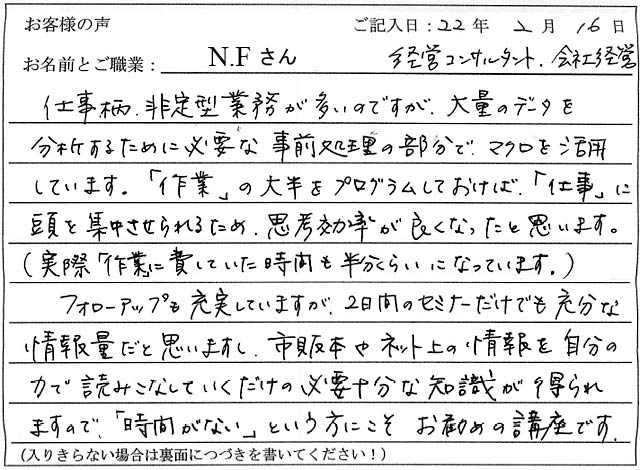 お客様の声 ご記入日：22年 2月 16日
お名前とご職業： N.F さん 経営コンサルタント、会社経営
仕事柄、非定型業務が多いのですが、大量のデータを
分析するために必要な事前処理の部分で、マクロを活用
しています。「作業」の大半をプログラムしておけば、「仕事」に
頭を集中させられるため、思考効率が良くなったと思います。
（実際「作業」に費していた時間も半分くらいになっています。）
フォローアップも充実していますが、2日間のセミナーだけでも充分な
情報量だと思いますし、市販本やネット上の情報を自分の
力で読みこなしていくだけの必要十分な知識が得られ
ますので、「時間がない」という方にこそお勧めの講座です。
（入りきらない場合は裏面につづきを書いてください！）